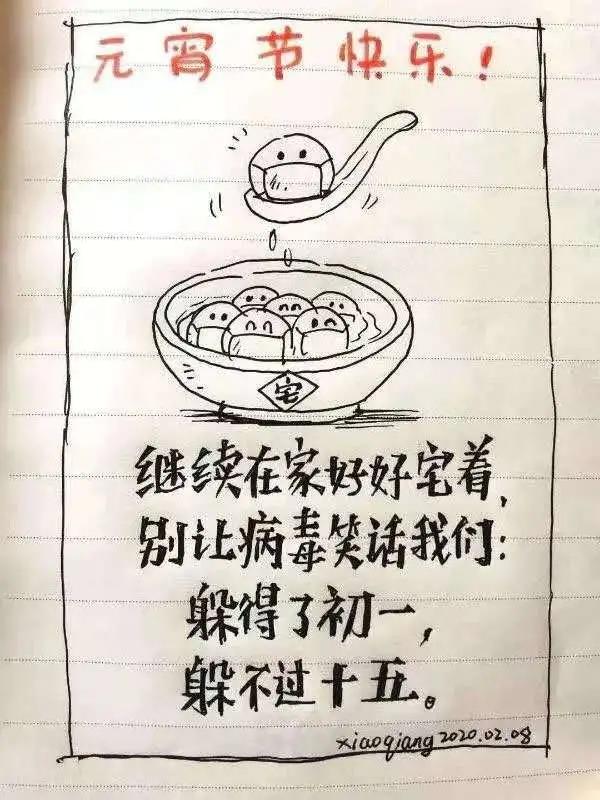 元宵节快乐!
宅
继续在家好好宅着,
别让病毒笑话我们:
躲得了初一,
躲不过十五。
xiaoqiang 2020.02.08